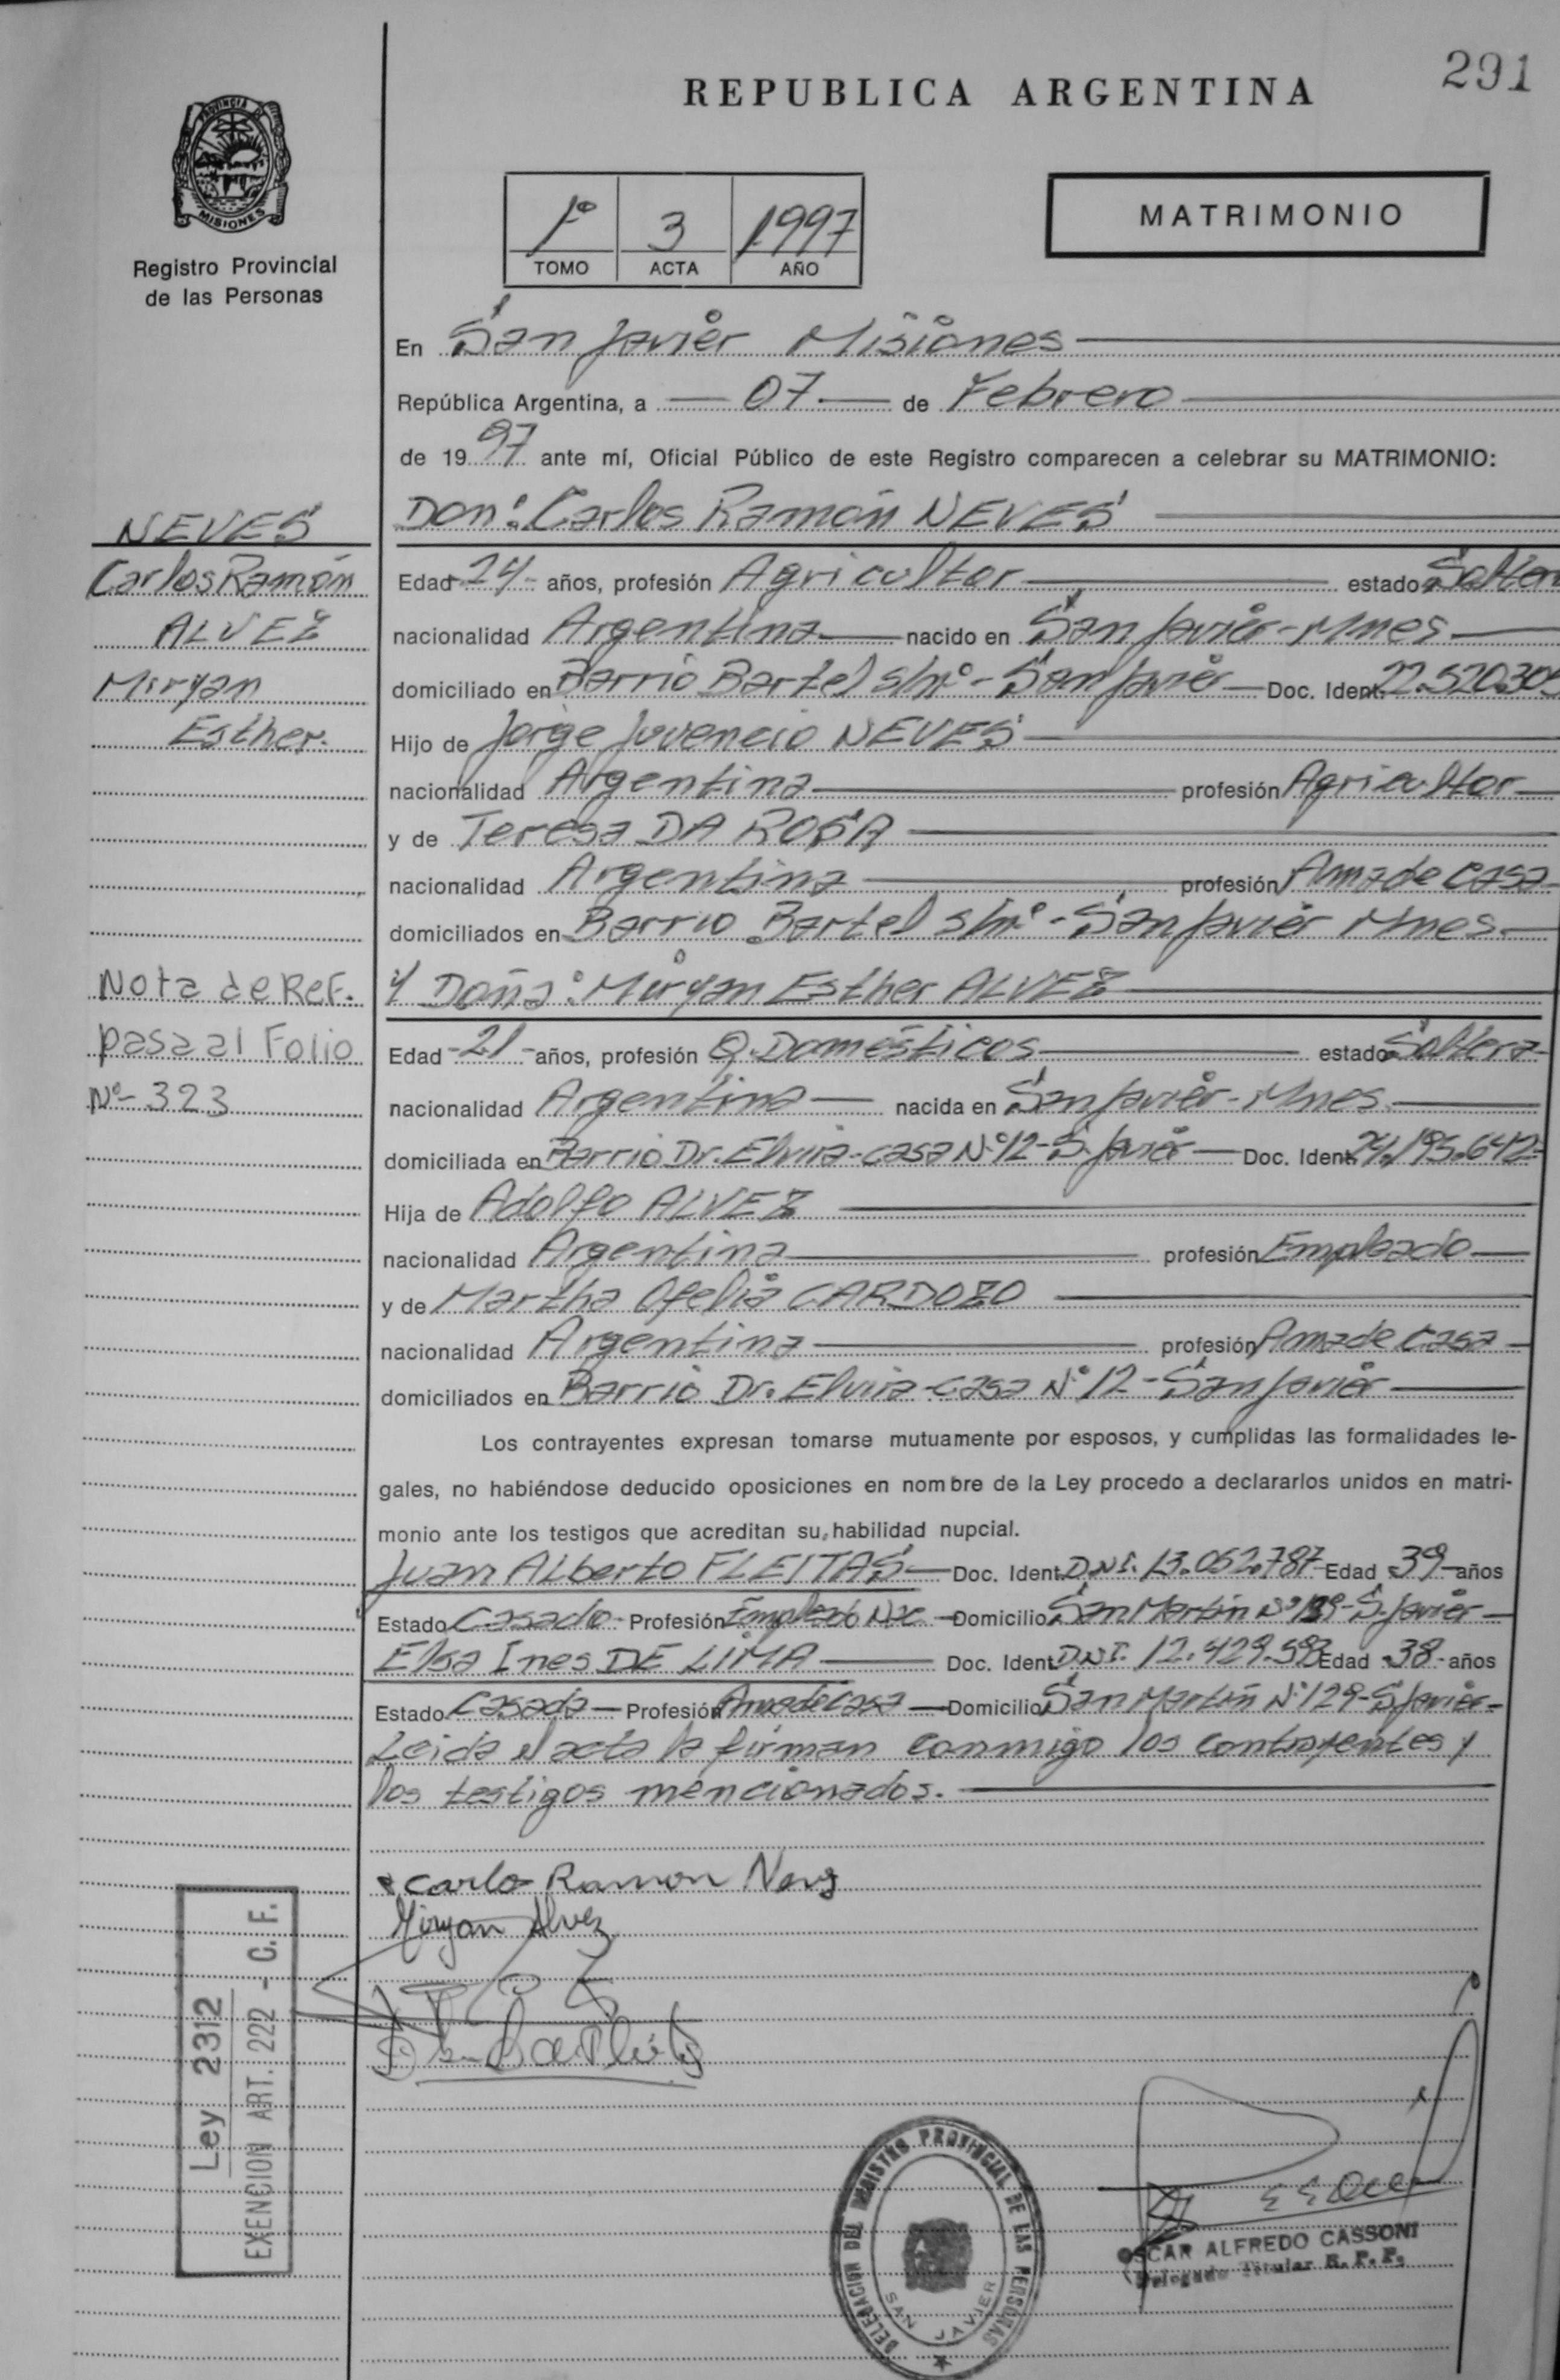 291
REPUBLICA ARGENTINA
PROVINCIA DE
MISIONES
Registro Provincial
de las Personas
1º 3 1997
TOMO ACTA AÑO
MATRIMONIO
En San Javier Misiones
República Argentina, a 07 de Febrero
de 1997 ante mí, Oficial Público de este Registro comparecen a celebrar su MATRIMONIO:
Don: Carlos Ramón NEVES
NEVES
Carlos Ramón
ALVEZ
Miryan
Esther.
Edad -24- años, profesión Agricultor estado Solter
nacionalidad Argentina nacido en San Javier-Mnes.
domiciliado en Barrio Bartel s/nº - San Javier Doc. Ident. 22.520.305
Hijo de Jorge Juvencio NEVES
nacionalidad Argentina profesión Agricultor
y de Teresa DA ROSA
nacionalidad Argentina profesión Ama de casa
domiciliados en Barrio Bartel s/nº - San Javier Mnes.
Nota de Ref.
pasa al Folio
Nº- 323
y Doña: Miryan Esther ALVEZ
Edad -21- años, profesión Q. Domésticos estado Soltera
nacionalidad Argentina nacida en San Javier-Mnes.
domiciliada en Barrio Dr. Elvira-casa Nº12-S. Javier Doc. Ident. 24.195.642
Hija de Adolfo ALVEZ
nacionalidad Argentina profesión Empleado
y de Martha Ofelia CARDOZO
nacionalidad Argentina profesión Ama de casa
domiciliados en Barrio Dr. Elvira-casa Nº12-San Javier
Los contrayentes expresan tomarse mutuamente por esposos, y cumplidas las formalidades le-
gales, no habiéndose deducido oposiciones en nombre de la Ley procedo a declararlos unidos en matri-
monio ante los testigos que acreditan su habilidad nupcial.
Juan Alberto FLEITAS Doc. Ident. D.N.I. 13.052.787 Edad 39 años
Estado Casado Profesión Empleado Nac Domicilio San Martín Nº 129-S. Javier
Elsa Ines DE LIMA Doc. Ident. D.N.I. 12.429.593 Edad 38 años
Estado Casada Profesión Ama de casa Domicilio San Martín Nº129-S Javier-
Leida el acta la firman conmigo los contrayentes y
los testigos mencionados.
Carlo Ramon Neves
Miryan Alvez
Ley 2312
EXENCION ART. 222 - C. F.
DELEGACION DEL REGISTRO PROVINCIAL DE LAS PERSONAS
SAN JAVIER
OSCAR ALFREDO CASSONI
Delegado Titular R. P. P.